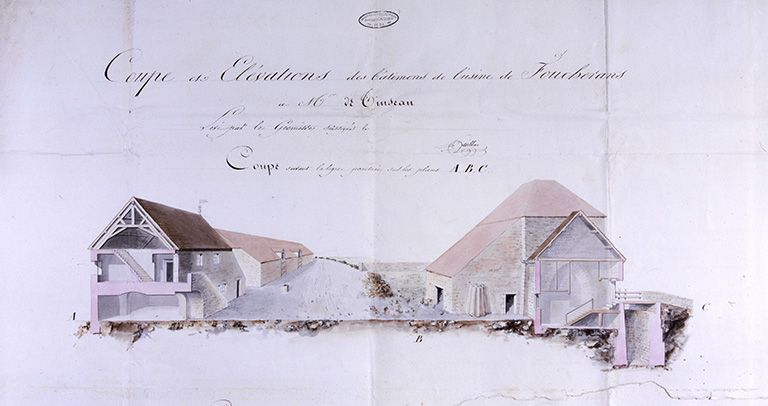 Coupe et Elévations des bâtimens de l'usine de Foucherans
à Mr de Tinseau
Levé par le Géomètre soussigné le
Coupe suivant la ligne ponctuée sur les plans A B C
A
B
C